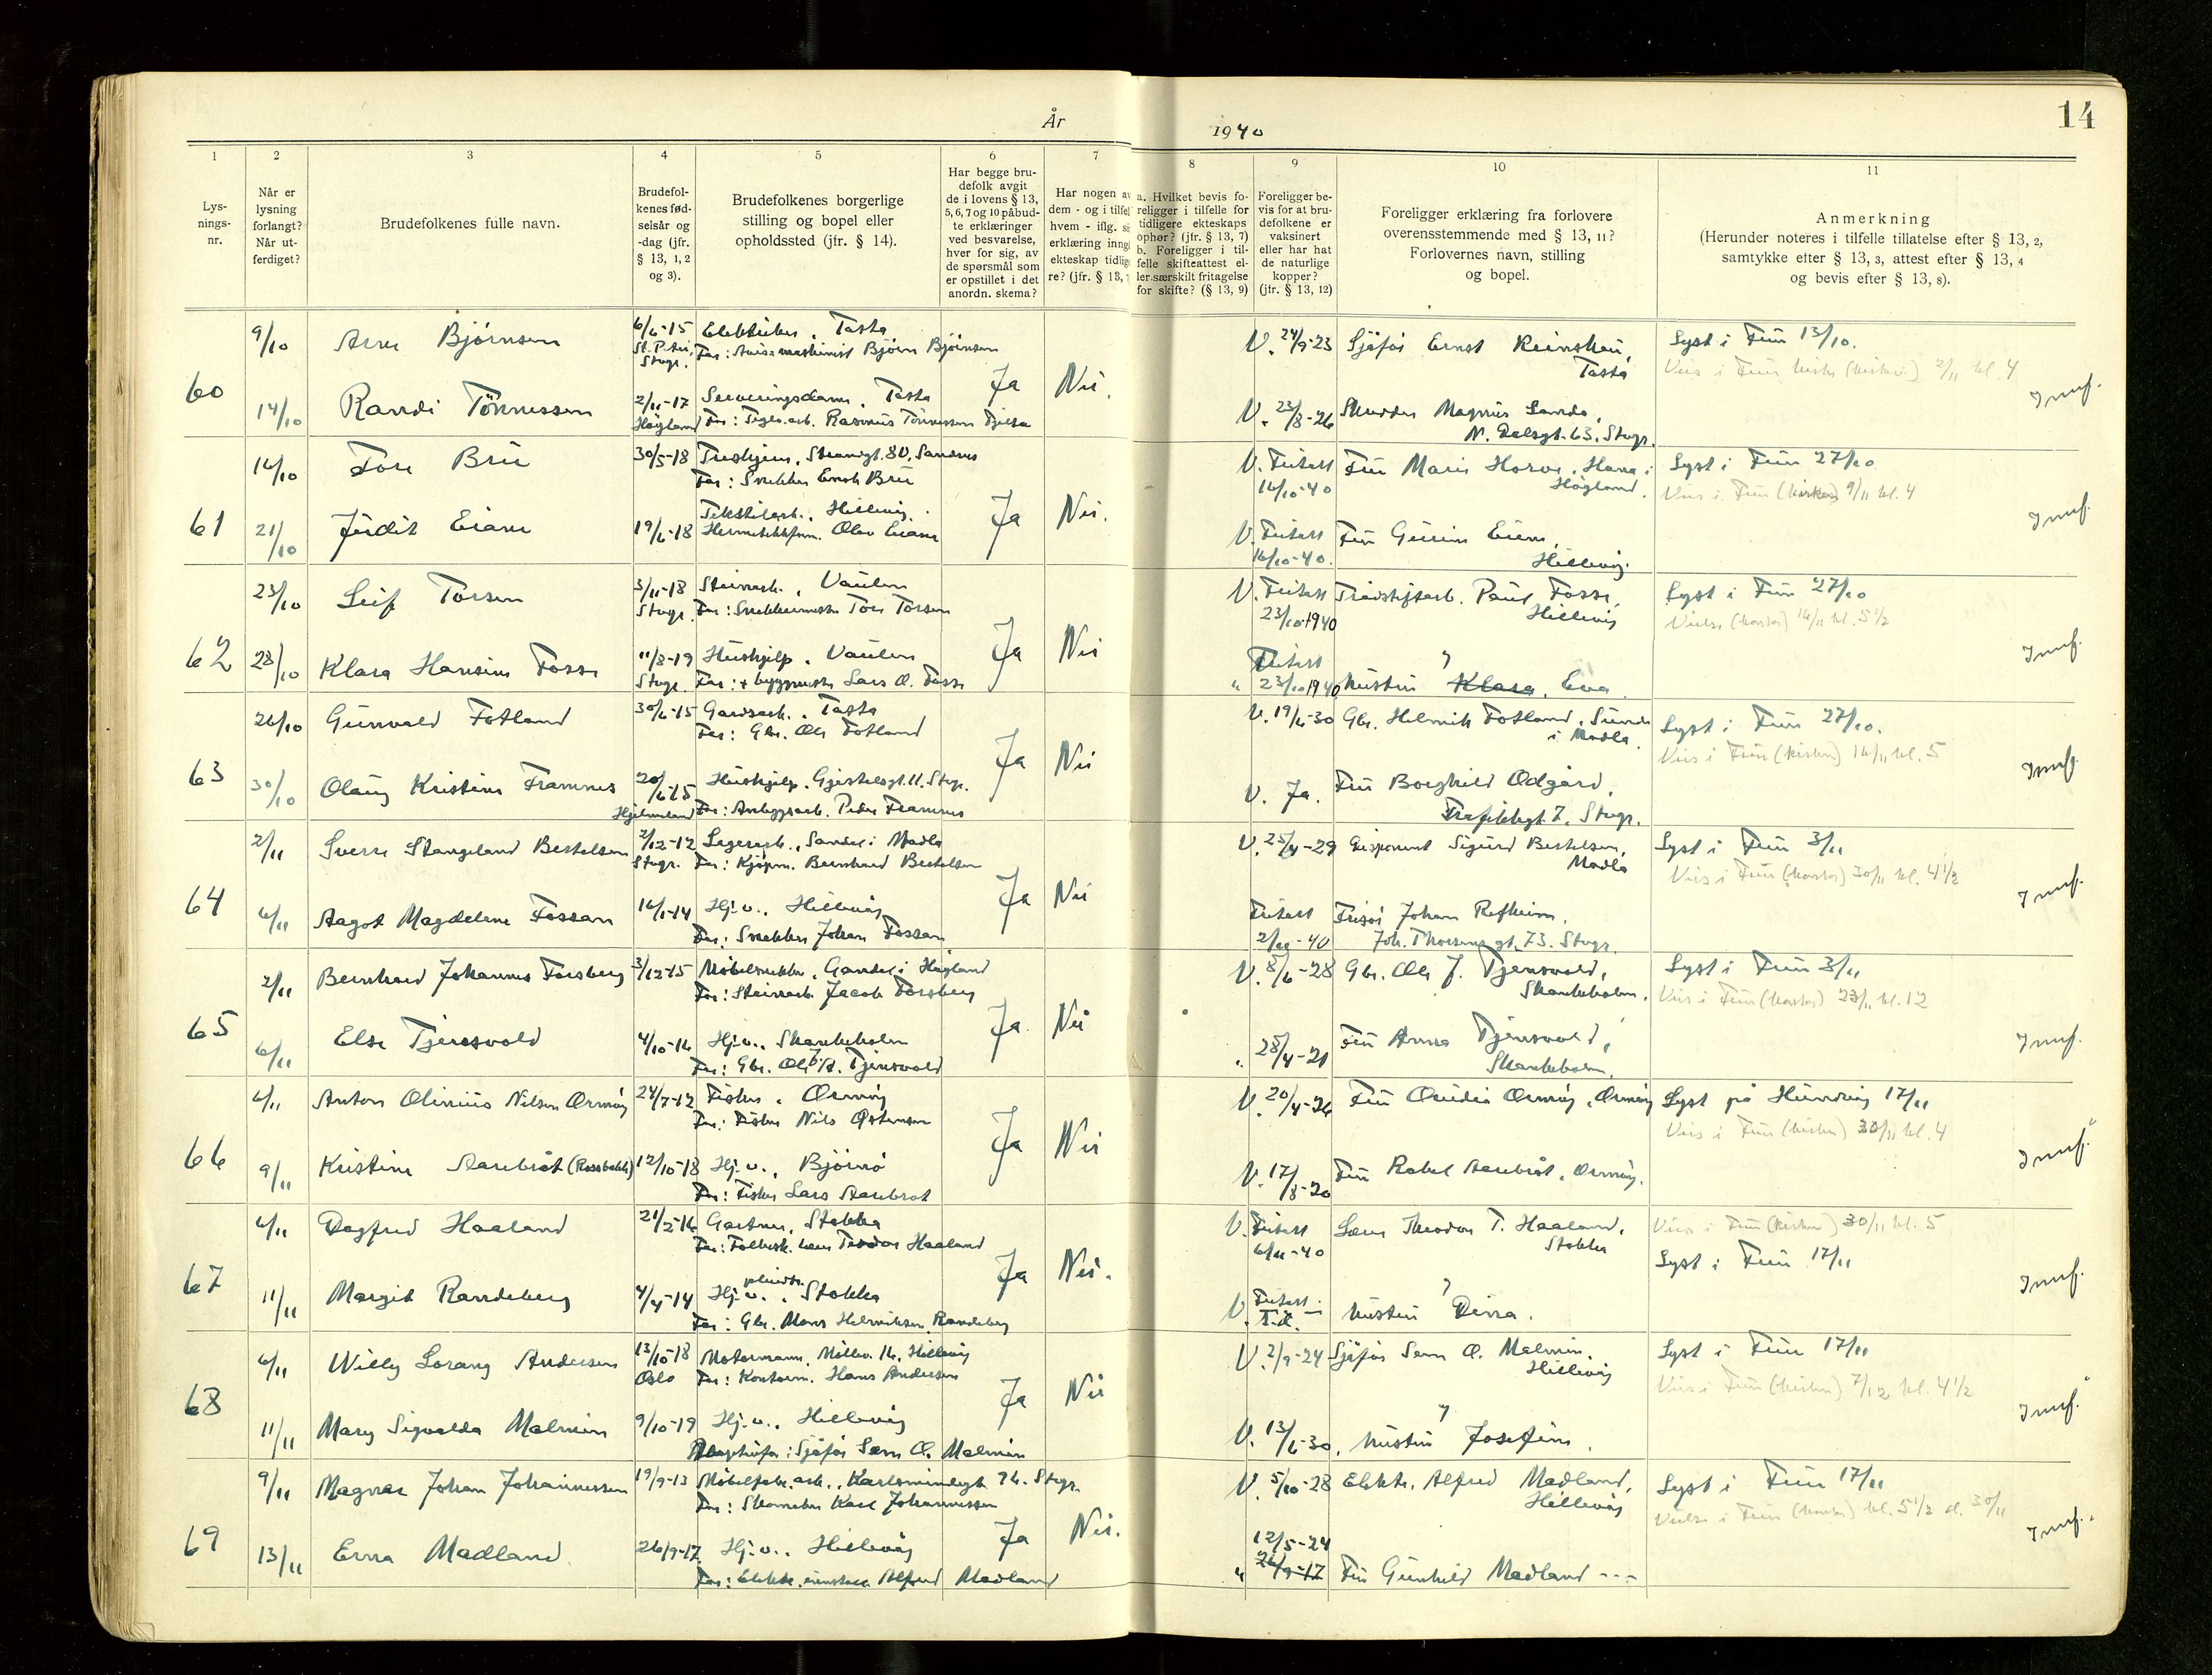 14
År 1940
1
2
3
4
5
6
7
8
9
10
11
Lys-
nings-
nr.
Når er
lysning
forlangt?
Når ut-
ferdiget?
Brudefolkenes fulle navn.
Brudefol-
kenes fød-
selsår og
-dag (jfr.
§ 13, 1, 2
og 3).
Brudefolkenes borgerlige
stilling og bopel eller
opholdssted (jfr. § 14).
Har begge bru-
defolk avgit
de i lovens § 13,
5, 6, 7 og 10 påbud-
te erklæringer
ved besvarelse,
hver for sig, av
de spørsmål som
er opstillet i det
anordn. skema?
Har nogen av
dem - og i tilfel
hvem - iflg. si
erklæring inngå
ekteskap tidlige
re? (jfr. § 13,
a. Hvilket bevis fo-
religger i tilfelle for
tidligere ekteskaps
ophør? (jfr. § 13, 7)
b. Foreligger i til-
felle skifteattest el-
ler særskilt fritagelse
for skifte? (§ 13, 9)
Foreligger be-
vis for at bru-
defolkene er
vaksinert
eller har hat
de naturlige
kopper?
(jfr. § 13, 12)
Foreligger erklæring fra forlovere
overensstemmende med § 13, 11?
Forlovernes navn, stilling
og bopel.
Anmerkning
(Herunder noteres i tilfelle tillatelse efter § 13, 2,
samtykke efter § 13, 3, attest efter § 13, 4
og bevis efter § 13, 8).
60
9/10 Arne Bjørnsen 6/6-15 Elektriker, Tasta
St. Petri, Stvgr. Far: Avismaskinist Bjørn Bjørnsen
V. 24/9-23 Sjåfør Ernst Reinskou,
Tasta
Lyst i Frue 13/10.
Vies i Frue kirke 2/11 kl. 4
Ja Nei.
14/10 Randi Tönnessen 2/11-17 Serveringsdame, Tasta
Høgland Far: Tegl.arb. Rasmus Tönnessen
V. 23/8-26 Skredder Magnus Sande,
N. Dalsgt. 63, Stvgr.
61
16/10 Tore Bru 30/5-18 Strandgt. 80, Sandnes
Far: Snekker Enok Bru
V. Fritatt 16/10-40 Fru Marie Horve, Hana i
Høgland.
Lyst i Frue 27/10
Vies i Frue (kirken) 9/11 kl. 4
Ja Nei.
21/10 Judit Eiane 19/6-18 Tekstilarb., Hillevåg.
Olav Eiane
V. Fritatt 16/10-40. Fru Gurine Eiene,
Hillevåg.
62
23/10 Leif Torsen 3/11-18 Steinarb., Vaulen
Stvgr. Far: Snekkermester Tore Torsen
V. Fritatt 23/10 1940 Paul Fosse,
Hillevåg
Lyst i Frue 27/10
Vielse 16/11 kl. 5 1/2
Ja Nei
28/10 Klara Hansine Fosse 11/8-19 Hushjelp, Vaulen
Stvgr. Far: + byggmester Lars O. Fosse
" Fritatt 23/10 1940 hustru Klara, Eva.
63
26/10 Gunvald Fotland 30/6-15 Gardsarb., Tasta
Far: Gbr. Ole Fotland
V. 19/6-30 Gbr. Helmik Fotland, Sunde
i Madla.
Lyst i Frue 27/10.
Vies i Frue (kirken) 16/11 kl. 5
Ja Nei
30/10 Olaug Kristine Framnes 20/6-15 Hushjelp, Gjestelsgt. 11, Stvgr.
Hjelmeland Far: Anleggsarb. Peder Framnes
V. Ja. Fru Borghild Odgård,
Trafikkgt. 7, Stvgr.
64
2/11 Sverre Stangeland Bertelsen 2/12-12 Lagerarb., Sande i Madla
Stvgr. Far: Kjøpm. Bernhard Bertelsen
V. 25/4-29 Disponent Sigurd Bertelsen,
Madla
Lyst i Frue 3/11
Vies i Frue 30/11 kl. 4 1/2
Ja Nei
6/11 Aagot Magdelene Fossan 16/1-14 Hj.v., Hillevåg
Far: Snekker Johan Fossan
Fritatt 2/11-40 Frisør Johan Refheim,
Joh. Thorsens gt. 73. Stvgr.
65
2/11 Bernhard Johannes Forsberg 3/12-15 Møbelsnekker, Gandal i Høyland
Far: Steinarb. Jacob Forsberg
V. 8/6-28 Gbr. Ole J. Tjensvold,
Skankeholm.
Lyst i Frue 3/11
Vies i Frue 23/11 kl. 12
Ja. Nei
6/11 Else Tjensvold 4/10-16 Hj.v., Skankeholm
Far: Gbr. Ole J. Tjensvold
" 28/4-21 Fru Anna Tjensvold,
Skankeholm.
66
6/11 Anton Olinius Nilsen Ormøy 24/7-12 Fisker, Ormøy
Far: Fisker Nils Østensen
V. 20/4-26 Fru Ormøy, Ormøy
Lyst på Hundvåg 17/11
Vies i Frue (kirken) 30/11 kl. 4
Ja Nei
9/11 Kristine Aarebrot (Rossbakk) 12/10-18 Hj.v., Bjørnø
Far: Fisker Lars Aarebrot
V. 17/8-20 Fru Rakel Aarebrot, Ormøy.
67
6/11 Dagfred Haaland 21/2-16 Gartner, Stokka
Far: Teodor Haaland
V. Fritatt 6/11-40 Theodor T. Haaland,
Stokka
Vies i Frue (kirken) 30/11 kl. 5
Lyst i Frue 17/11
Ja Nei.
11/11 Margit Randeberg 4/4-14 Hj.v., Stokka
Far: Gbr. Mons Helmiksen Randeberg
V. Fritatt s.d. hustru Dina.
68
6/11 Willy Lorang Andersen 13/10-18 Motormann, Møllev. 16, Hillevåg
Oslo Far: Kontorm. Hans Andersen
V. 2/9-24 Sjåfør Søren O. Malmin,
Hillevåg
Lyst i Frue 17/11
Vies i Frue (kirken) 7/12 kl. 4 1/2
Ja Nei
11/11 Mary Sigvalda Malmin 9/10-19 Hj.v., Hillevåg
Sjåfør Søren O. Malmin
V. 13/6-30. hustru Josefine.
69
9/11 Magnar Johan Johannessen 19/9-13 Møbelfabr.arb., Karlsminnegt. 76. Stvgr.
Far: Skomaker Karl Johannessen
V. 5/10-28 Elektr. Alfred Madland,
Hillevåg
Lyst i Frue 17/11
Vielse i Frue kl. 5 1/2 d. 30/11
Ja Nei.
13/11 Erna Madland. 26/9-17 Hj.v., Hillevåg
Far: Alfred Madland
12/5-24
" 26/9-17 Fru Gunhild Madland ---